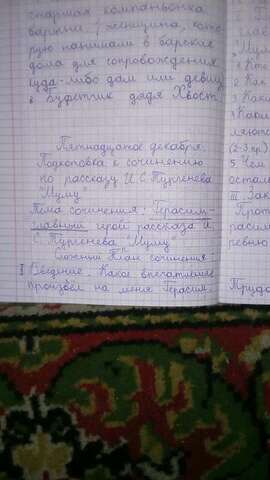 старшая компаньонка
барыни. / женщина, кото-
рую нанимали в барские
дома для сопровождения
куда-либо дам или девиц
Буфетчик дядя Хвост
Пятнадцатое декабря.
Подготовка к сочинению
по рассказу И.С Тургенева
"Муму"
Тема сочинения: Герасим-
главный герой рассказа И.
С. Тургенева "Муму"
План сочинения:
I Введение. Какое впечатление
произвёл на меня Герасим.
1. Кто
2. Как
3. Каки
(2-3 пр)
5. Чем
остал
III. Зак
Прот
расим
ревню
Трудо